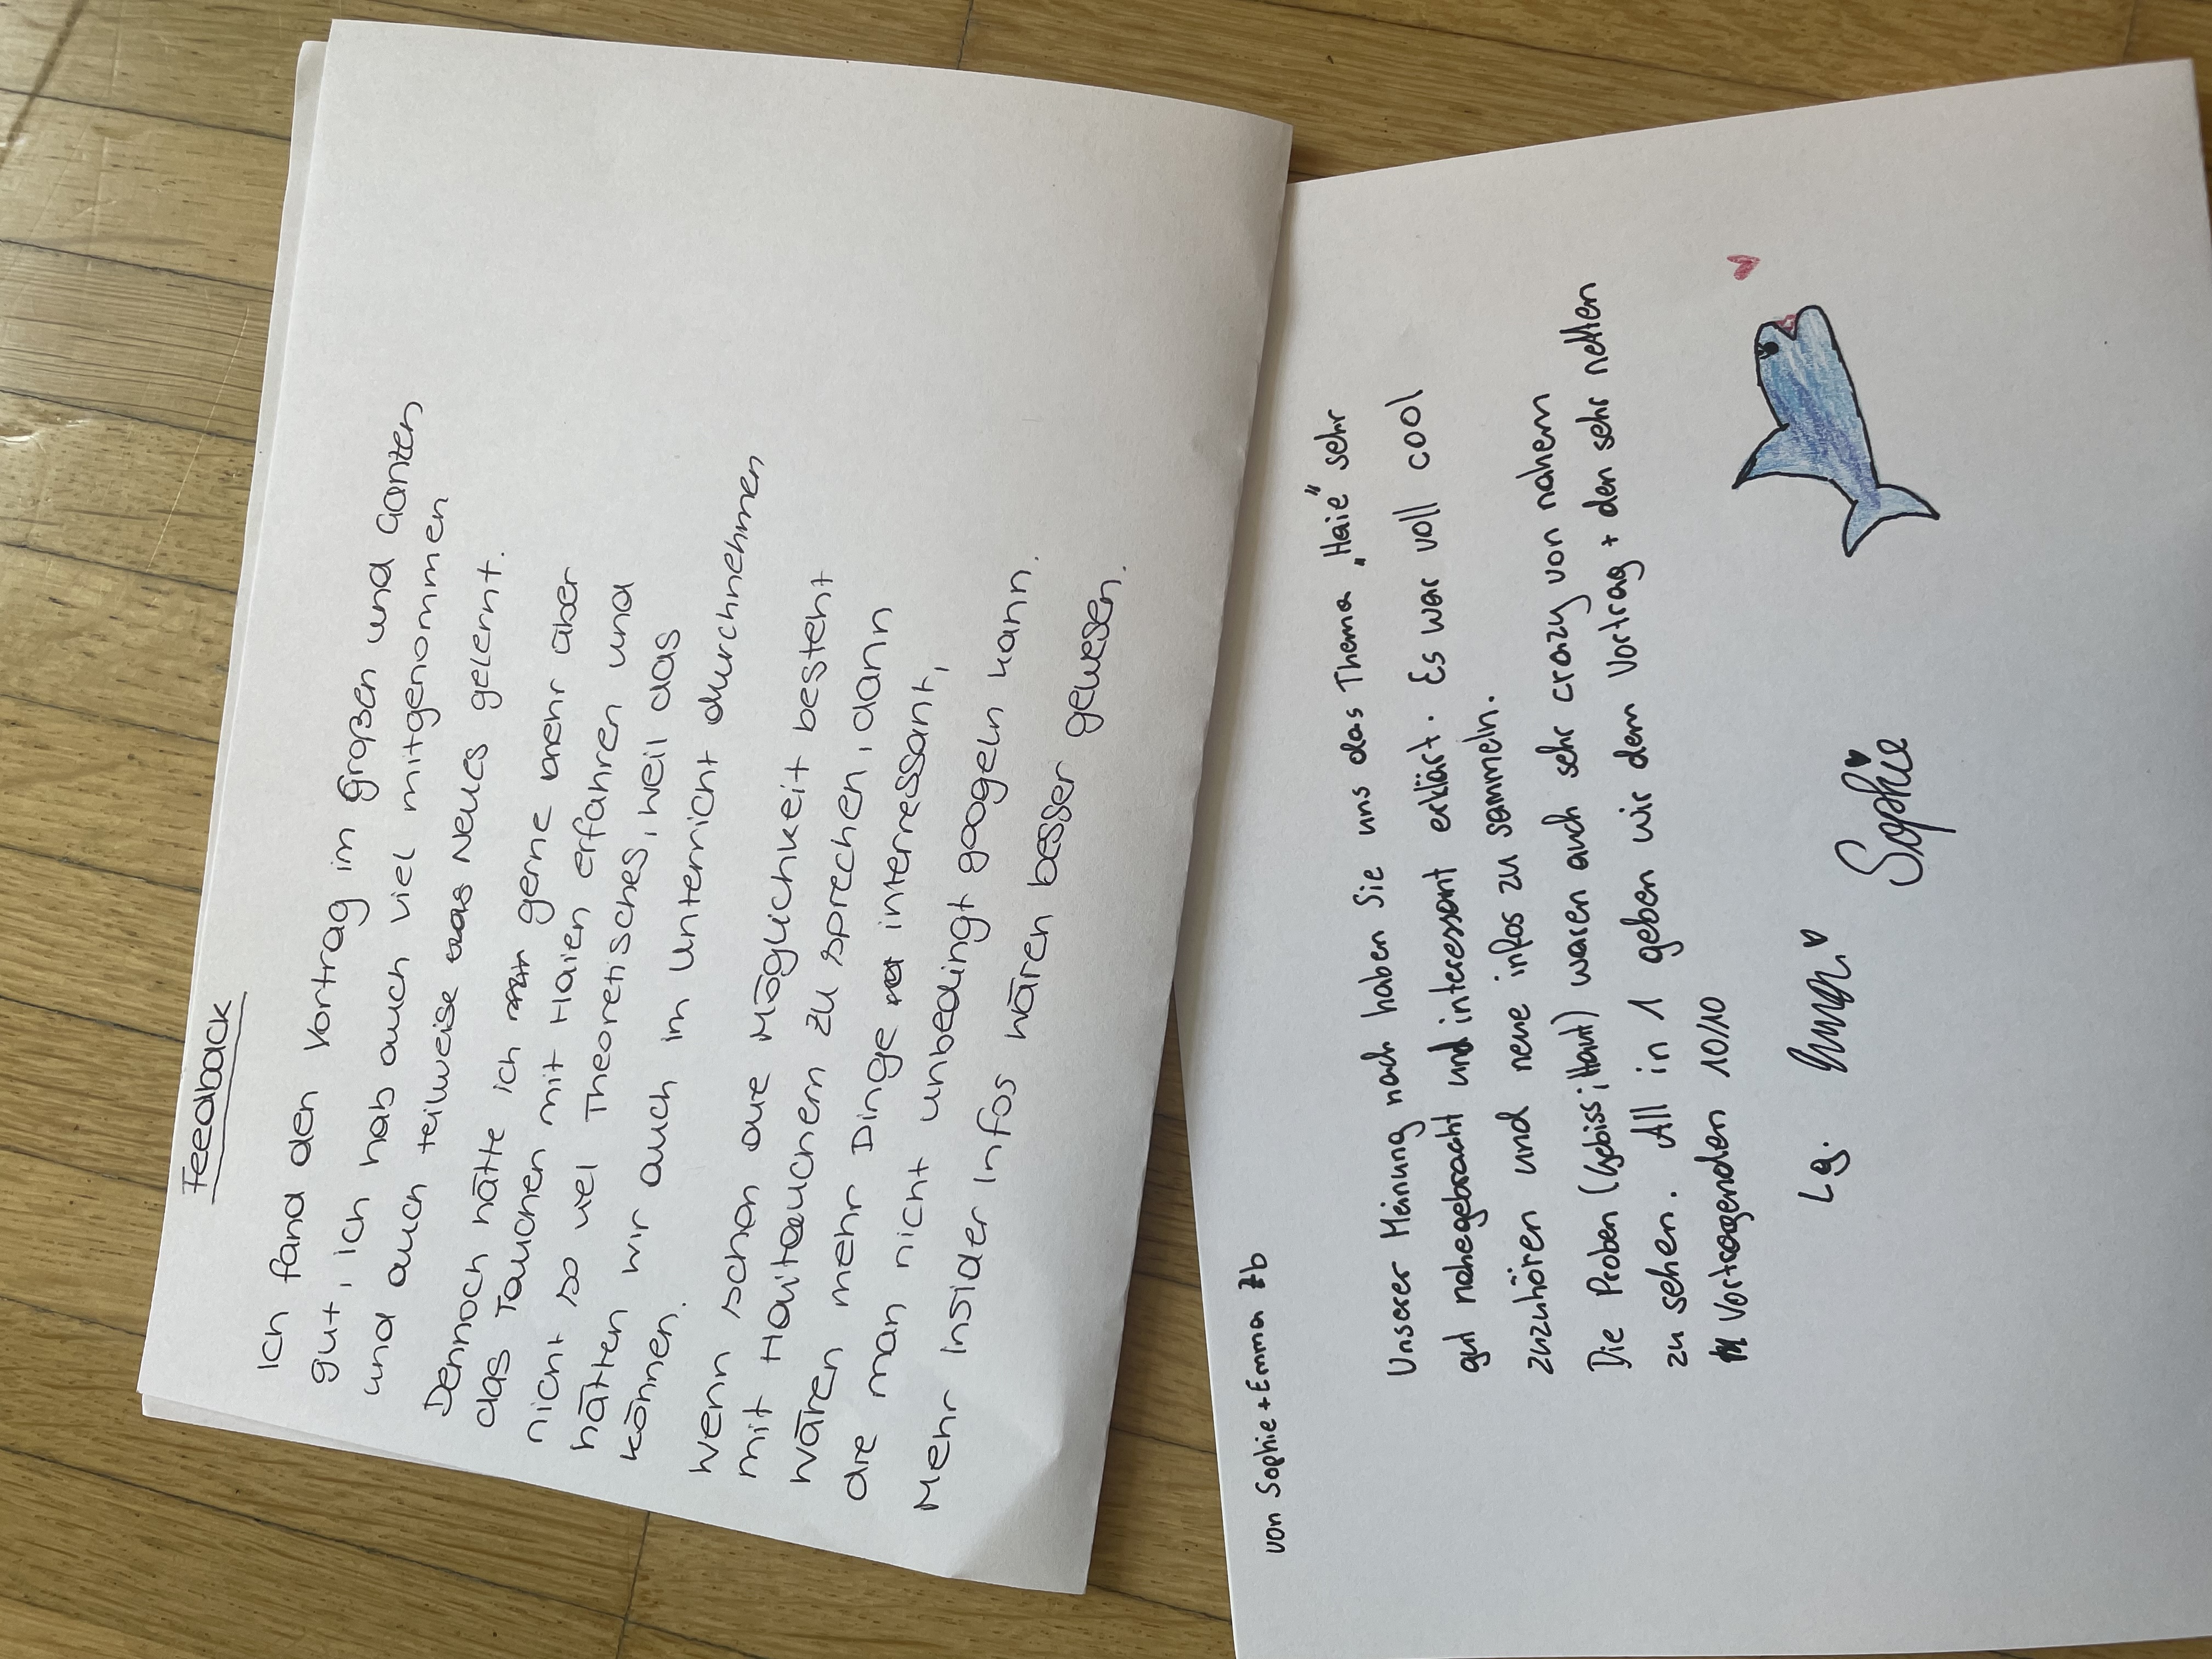 Feedback
Ich fand den Vortrag im Großen und Ganzen
gut, ich hab auch viel mitgenommen
und auch teilweise was Neues gelernt.
Dennoch hätte ich gerne mehr über
das Tauchen mit Haien erfahren und
nicht so viel Theoretisches, weil das
hätten wir auch im Unterricht durchnehmen
können.
Wenn schon die Möglichkeit besteht
mit Haitauchern zu sprechen, dann
wären mehr Dinge interressant,
die man nicht unbedingt googeln kann.
Mehr Insider Infos wären besser gewesen.
von Sophie + Emma 7b
Unserer Meinung nach haben Sie uns das Thema „Haie" sehr
gut nahegebracht und interessant erklärt. Es war voll cool
zuzuhören und neue infos zu sammeln.
Die Proben (Gebiss; Haut) waren auch sehr crazy von nahem
zu sehen. All in 1 geben wir dem Vortrag + den sehr netten
Vortragenden 10/10
Lg. Emma Sophie